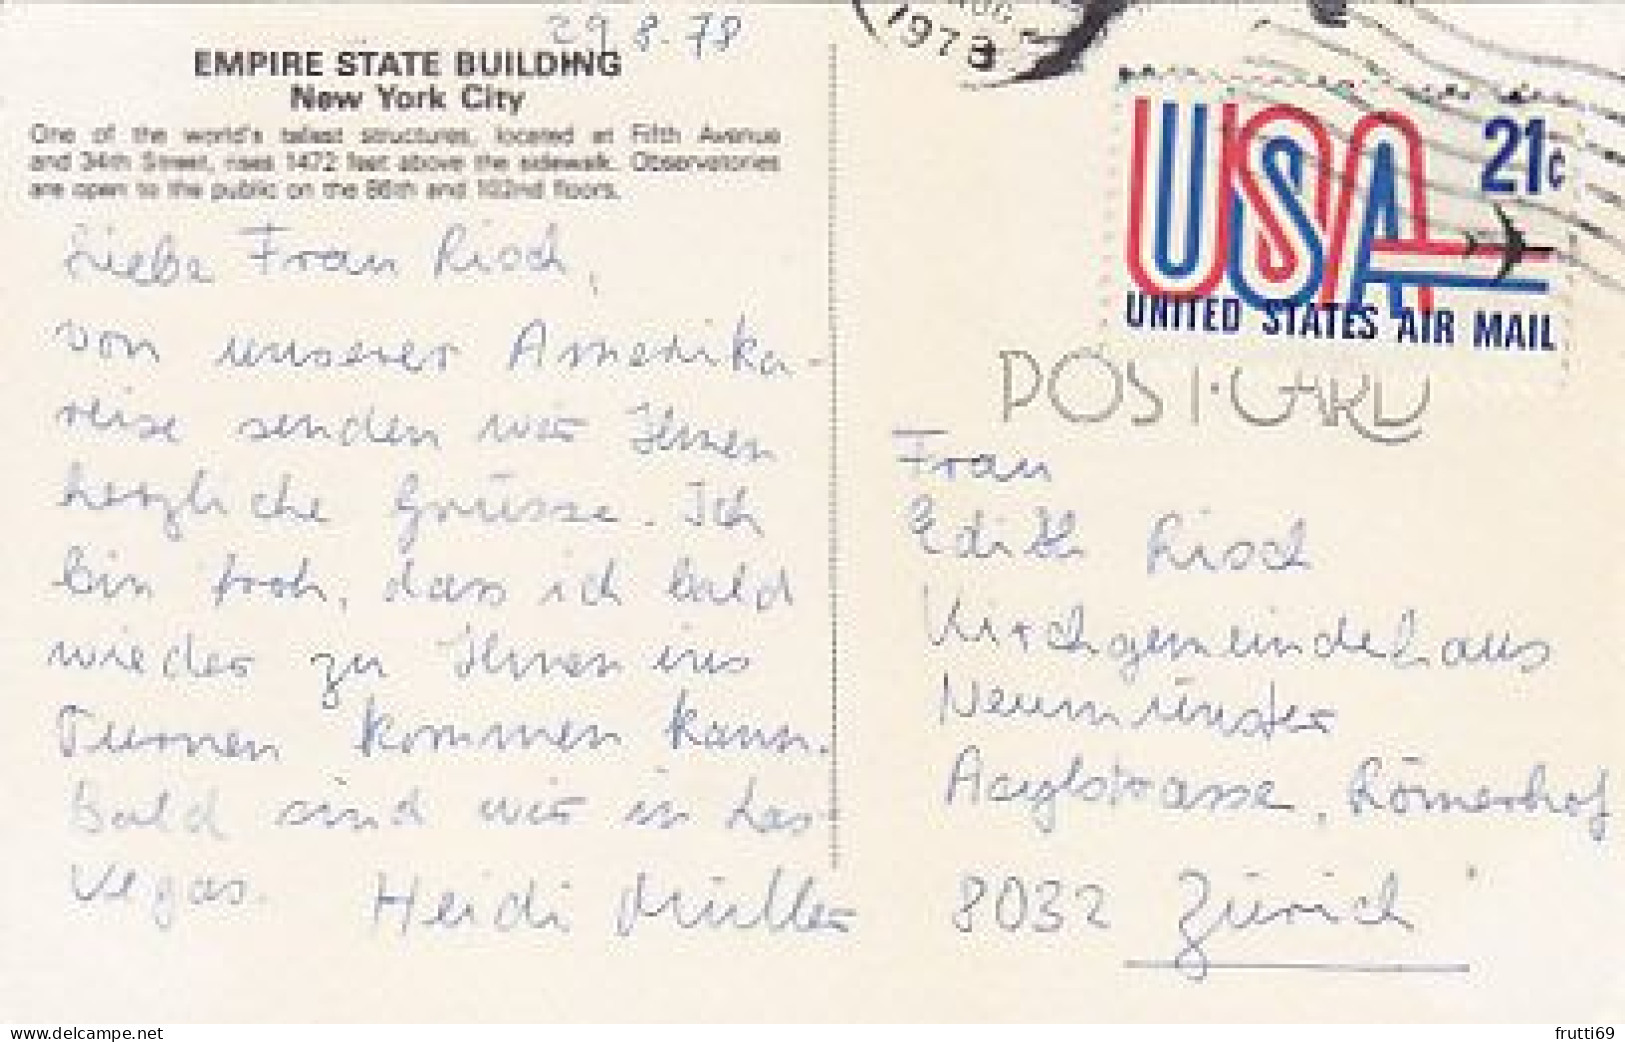 29.8.78
EMPIRE STATE BUILDING
New York City
One of the world's tallest structures, located at Fifth Avenue
and 34th Street, rises 1472 feet above the sidewalk. Observatories
are open to the public on the 86th and 102nd floors.
Liebe Frau Risch,
von unserer Amerika-
reise senden wir Ihnen
herzliche Grüsse. Ich
bin froh, dass ich bald
wieder zu Ihnen ins
Turnen kommen kann.
Bald sind wir in Las
Vegas. Heidi Müller
AUG
1978
USA 21c
UNITED STATES AIR MAIL
POST CARD
Frau
Edith Risch
Kirchgemeindehaus
Neumünster
Asylstrasse, Römerhof
8032 Zürich
www.delcampe.net
frutti69